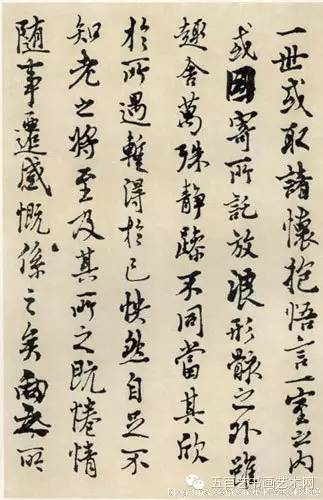 一世或取諸懷抱悟言一室之内
或因寄所託放浪形骸之外雖
趣舍萬殊静躁不同當其欣
於所遇暫得於己快然自足不
知老之將至及其所之既惓情
随事遷感慨係之矣向之所
书画艺术网